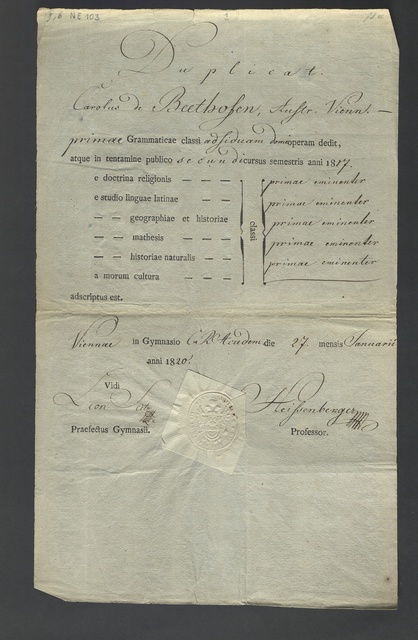 NE 103
Duplicat.
Carolus de Beethofen, Austr. Vienn. —
primae Grammaticae classi adsiduam domi operam dedit,
atque in tentamine publico secundi cursus semestris anni 1817.
e doctrina religionis — — — primae eminenter
e studio linguae latinae — — primae eminenter
— — geographiae et historiae primae eminenter
— — mathesis — — — primae eminenter
— — historiae naturalis — — primae eminenter
a morum cultura — — —
classi
adscriptus est.
Viennae in Gymnasio C. R. Academ die 27 mensis Januarii
anni 1820.
Vidi
Praefectus Gymnasii.
Heissenberger
Professor.